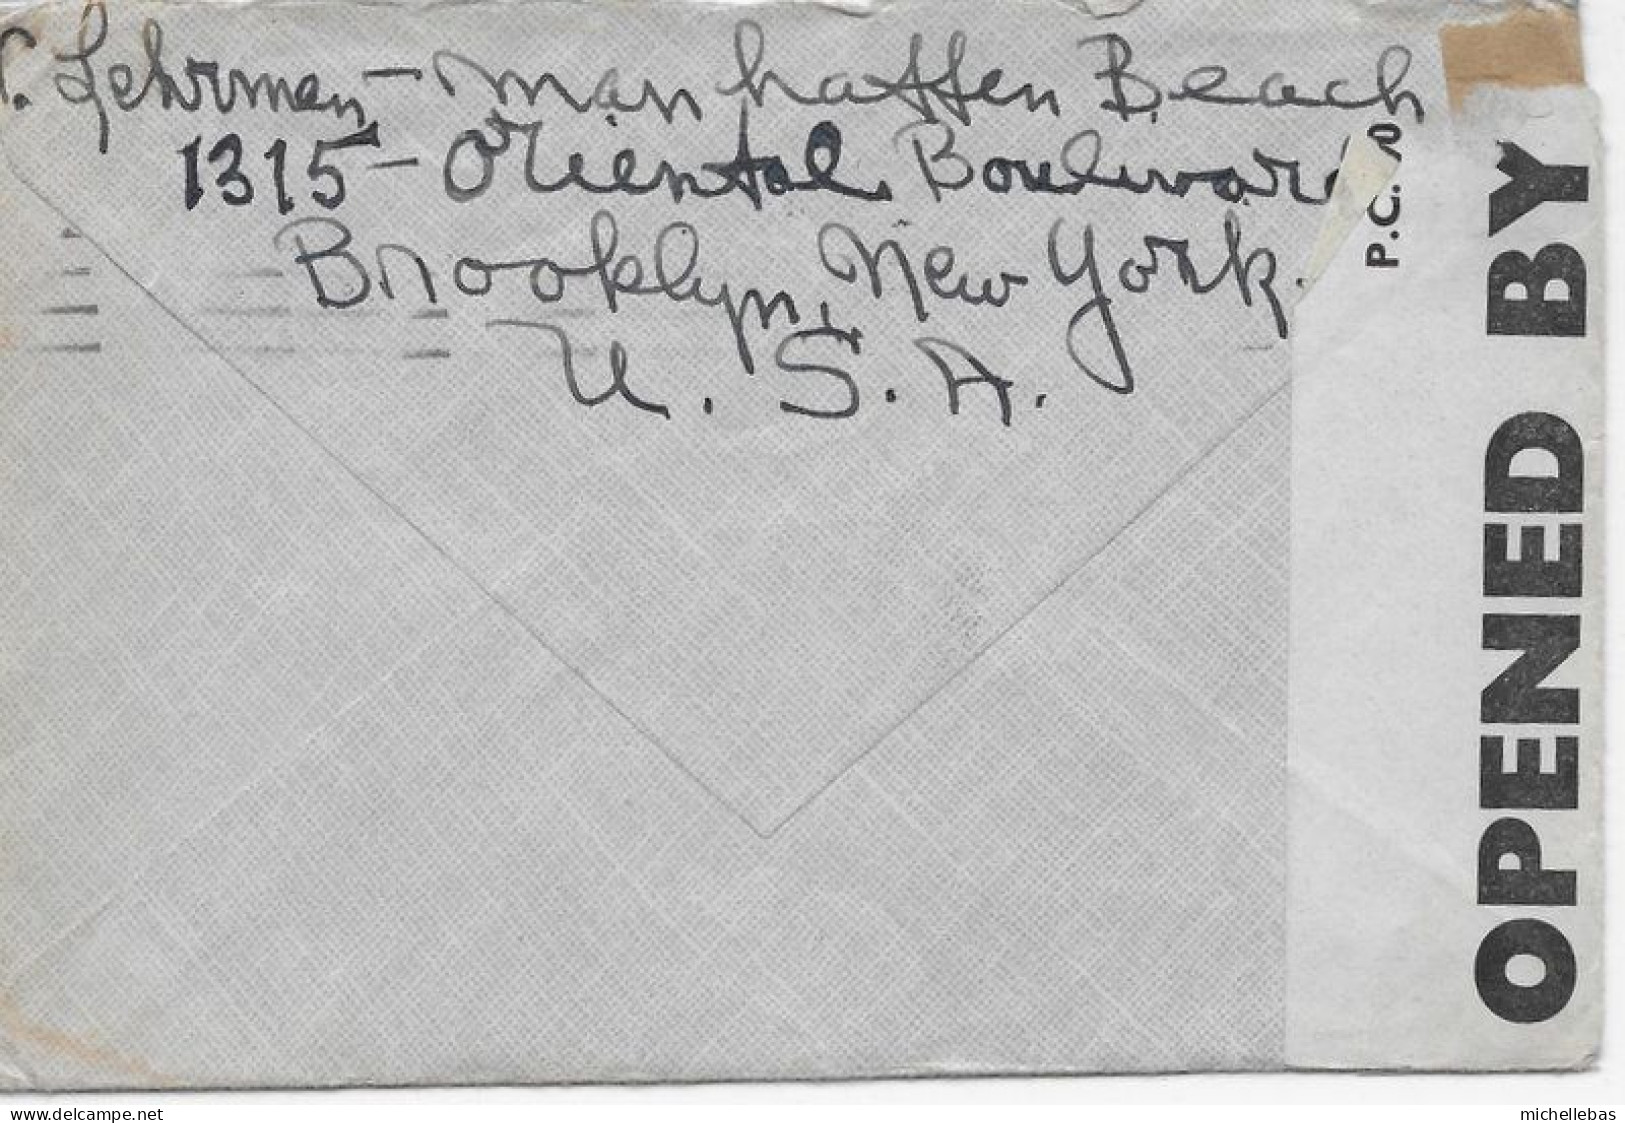 Lehrman - Manhatten Beach
1315 - Oriental Boulevard
Brooklyn, New York.
U. S. A.
P.C.
OPENED BY
www.delcampe.net
michellebas